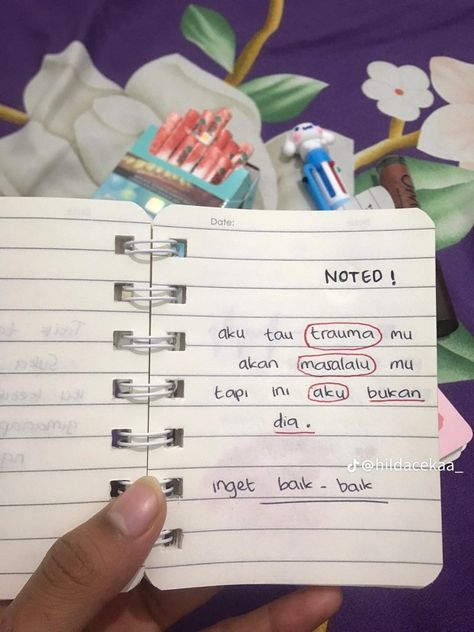 Date:
NOTED!
aku tau trauma mu
akan masalalu mu
tapi ini aku bukan
dia.
@hildacekaa_
inget baik - baik